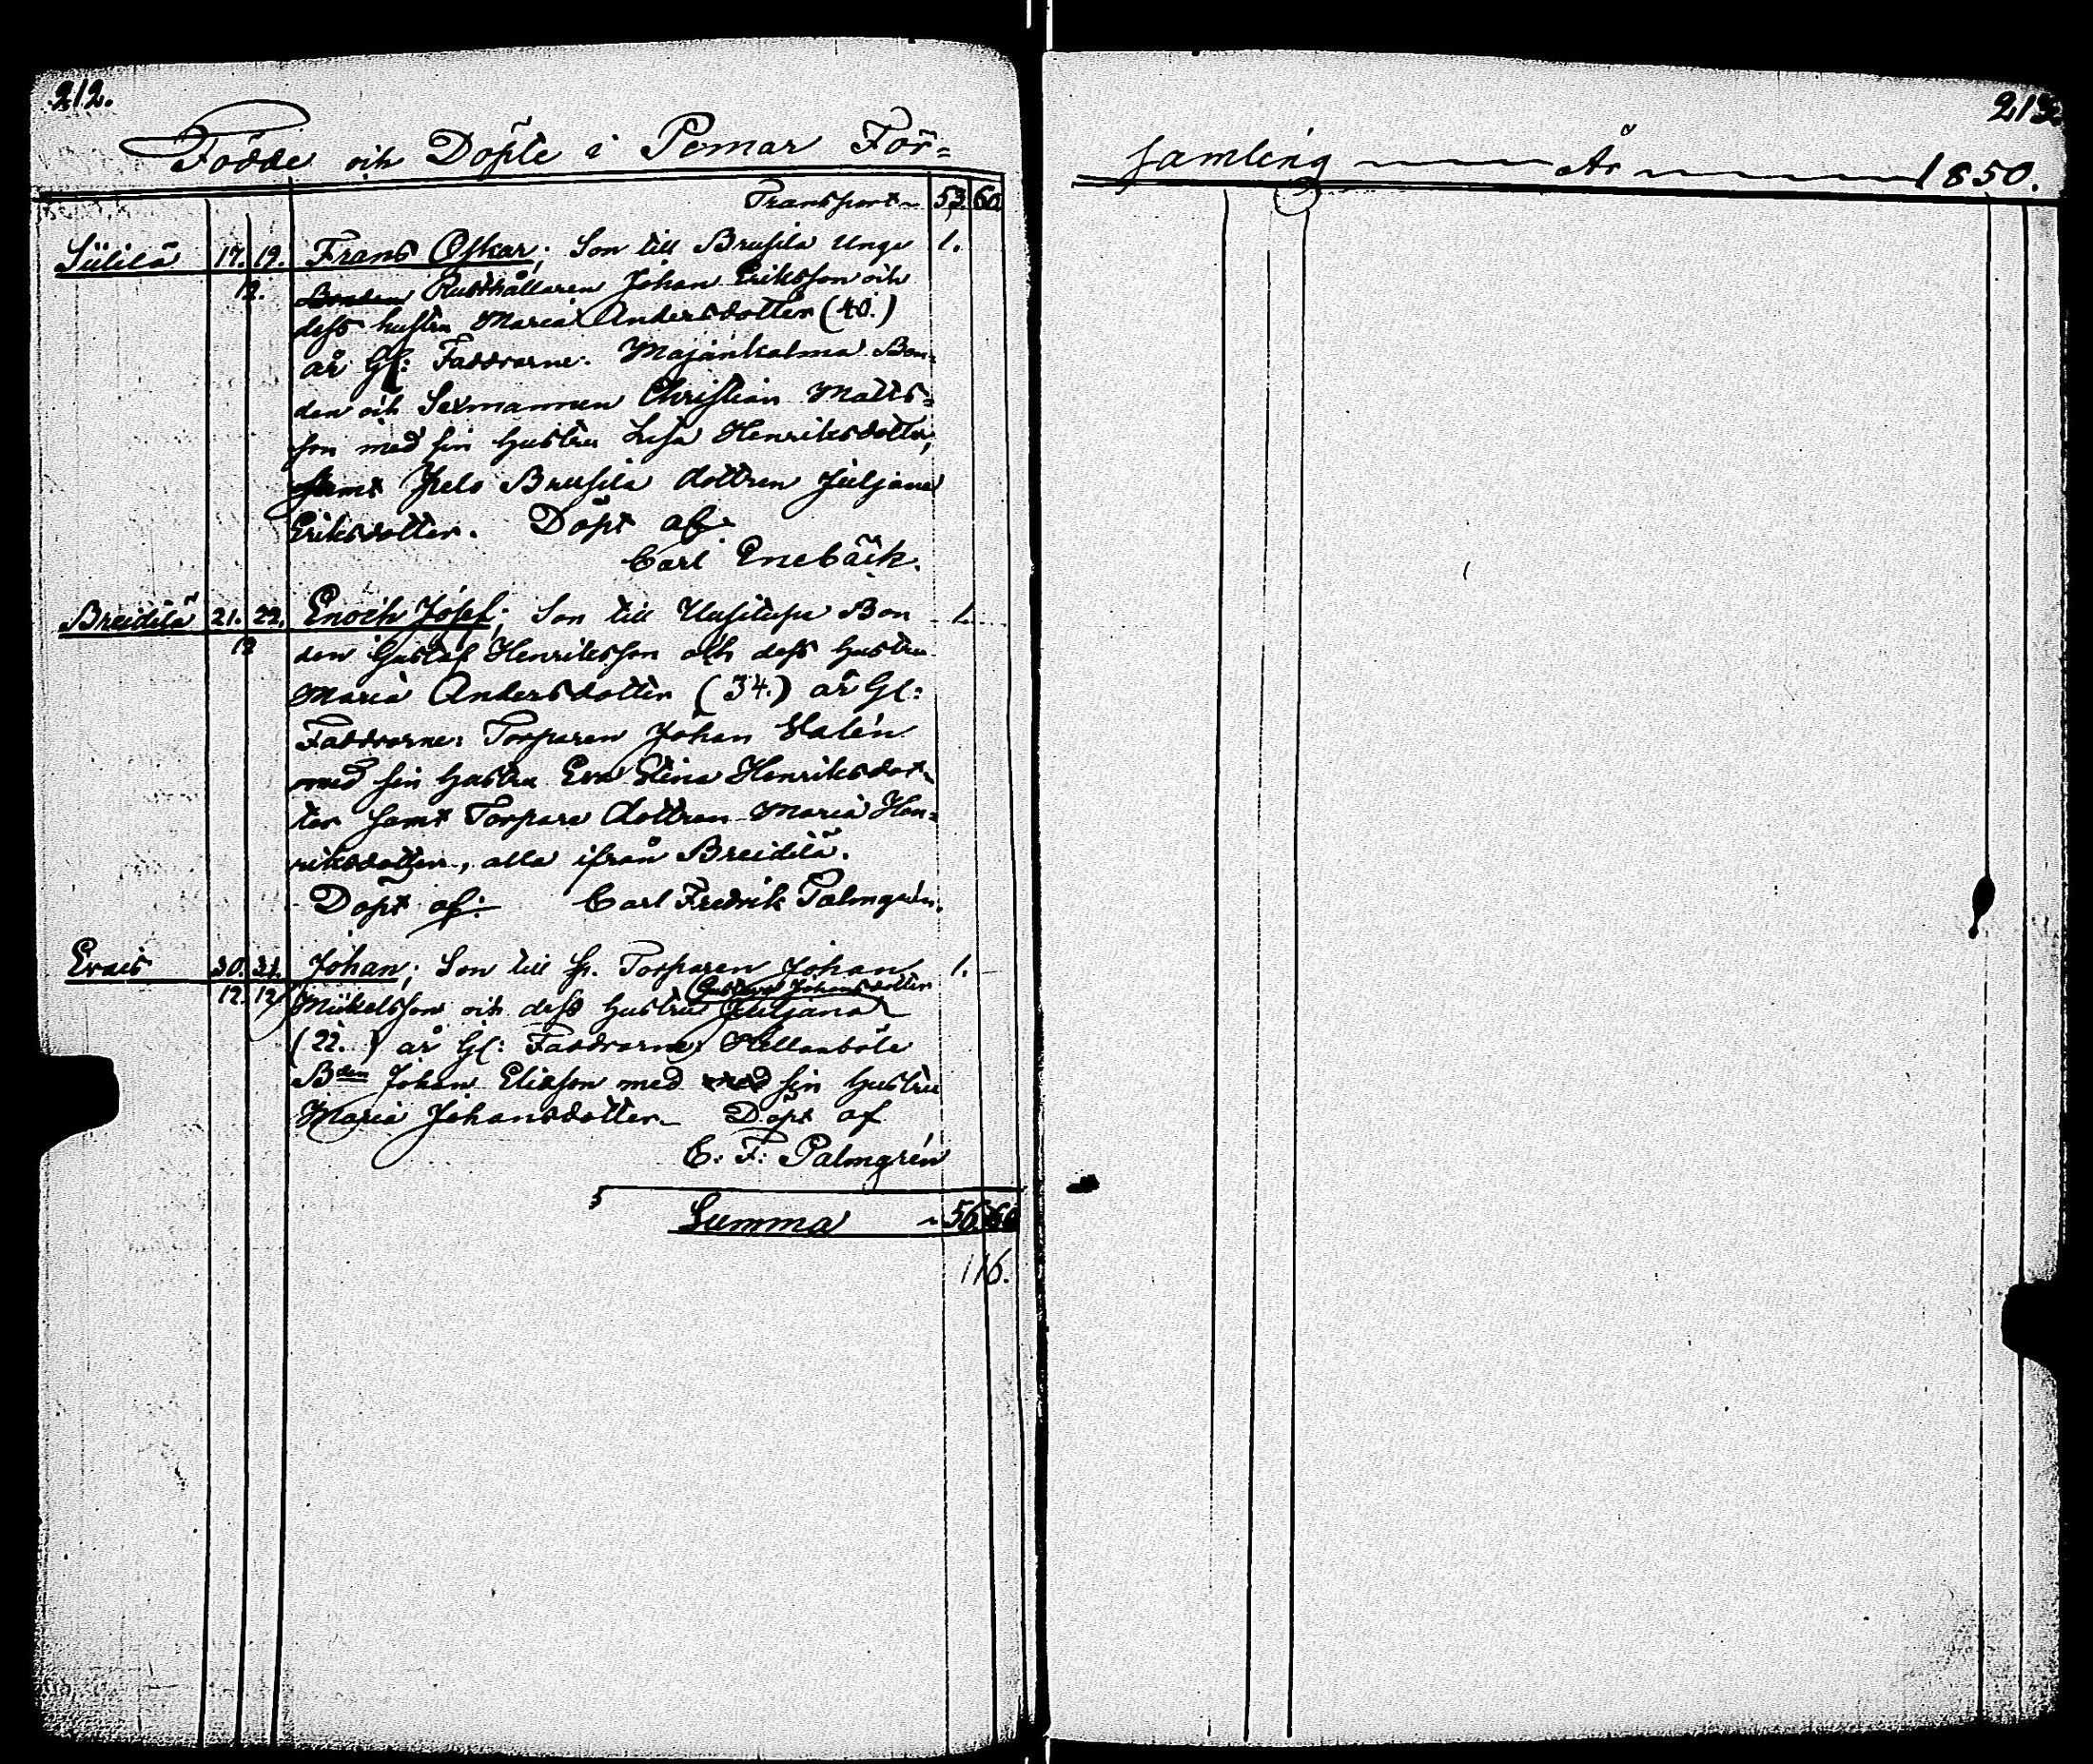 212.
Födde och Döpte i Pemar För=
Transport 53. 60.
Siililä 17. 19. Frans Oskar; Son till Brusila Unga 1.
12. Bonden Rusthållaren Johan Eriksson och
dess hustru Maria Andersdotter (40.)
år Gl: Faddrarne: Majankalma Bon=
den och Sexmannen Christian Matts=
son med sin hustru Lisa Henriksdotter,
samt Brusila dottren Juljana
Eriksdotter. Döpt af
Carl Enebäck.
Breidilä 21. 22. Enoch Josef; Son till Uusitupa Bon 1.
12 den Gustaf Henriksson och dess hustru
Maria Andersdotter (34.) år Gl:
Faddrarne: Torparen Johan Halén
med sin hustru Eva Stina Henriksdot=
ter samt Torpare dottren Maria Hen=
riksdotter, alla ifrån Breidilä.
Döpt af: Carl Fredrik Palmgrén.
Evais 30. 31. Johan; Son till Torparen Johan 1.
Gustava Johansdotter
12. 12 Mickelsson och dess hustru Juljana
(22.) år Gl: Faddrarne: Källanböle
Bden Johan Eliasson med med sin hustru
Maria Johansdotter. Döpt af
C. F. Palmgrén
Summa 56. 60
116.
213.
samling År 1850.